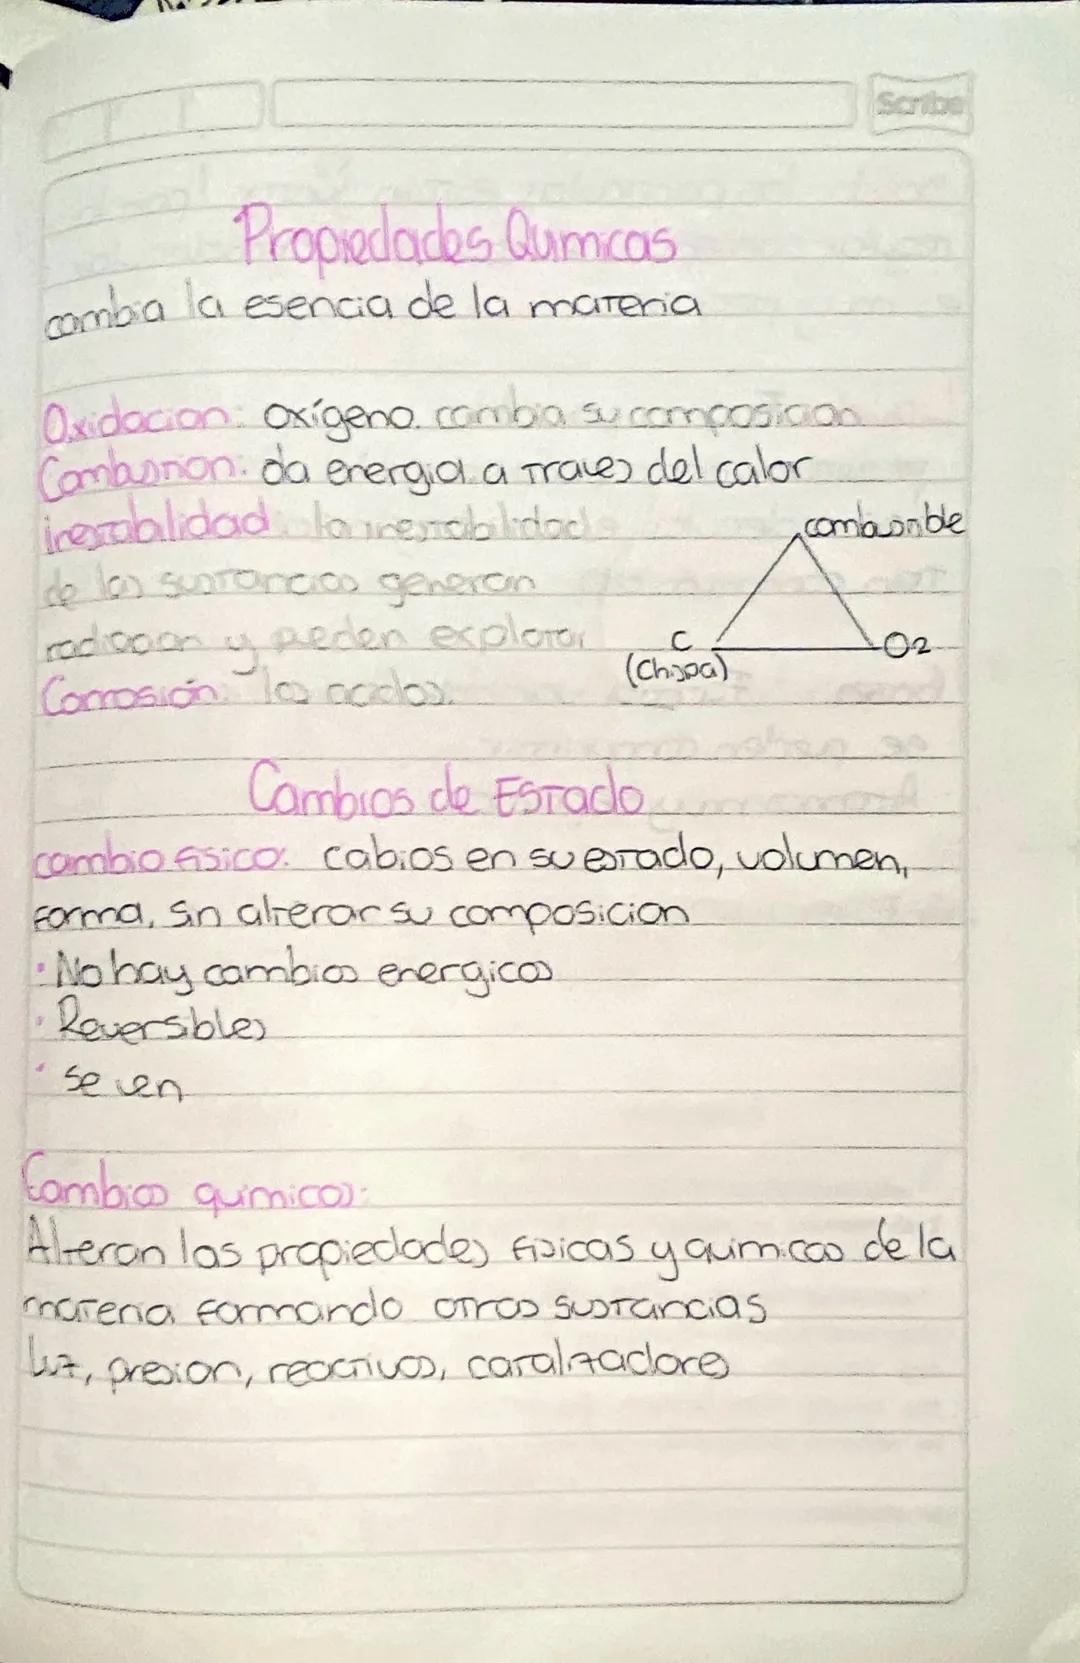 Scribe
Propiedades Quimicas
cambia la esencia de la materia
Oxidacion: oxígeno. cambia su composicion
Combustion: da energia a traves del calor
inestabilidad: la inestabilidad
combustible
de las sustancias generan
radiacion y pueden explotar
C
O2
(Chispa)
Corrosión: los acidos.
Cambios de Estado
cambio fisico: cabios en su estado, volumen,
forma, sin alterar su composicion
· No hay cambios energicos
· Reversibles
· se ven
Cambios quimicos:
Alteran las propiedades fisicas y quimicas de la
materia formando otras sustancias
luz, presion, reactivos, catalizadores